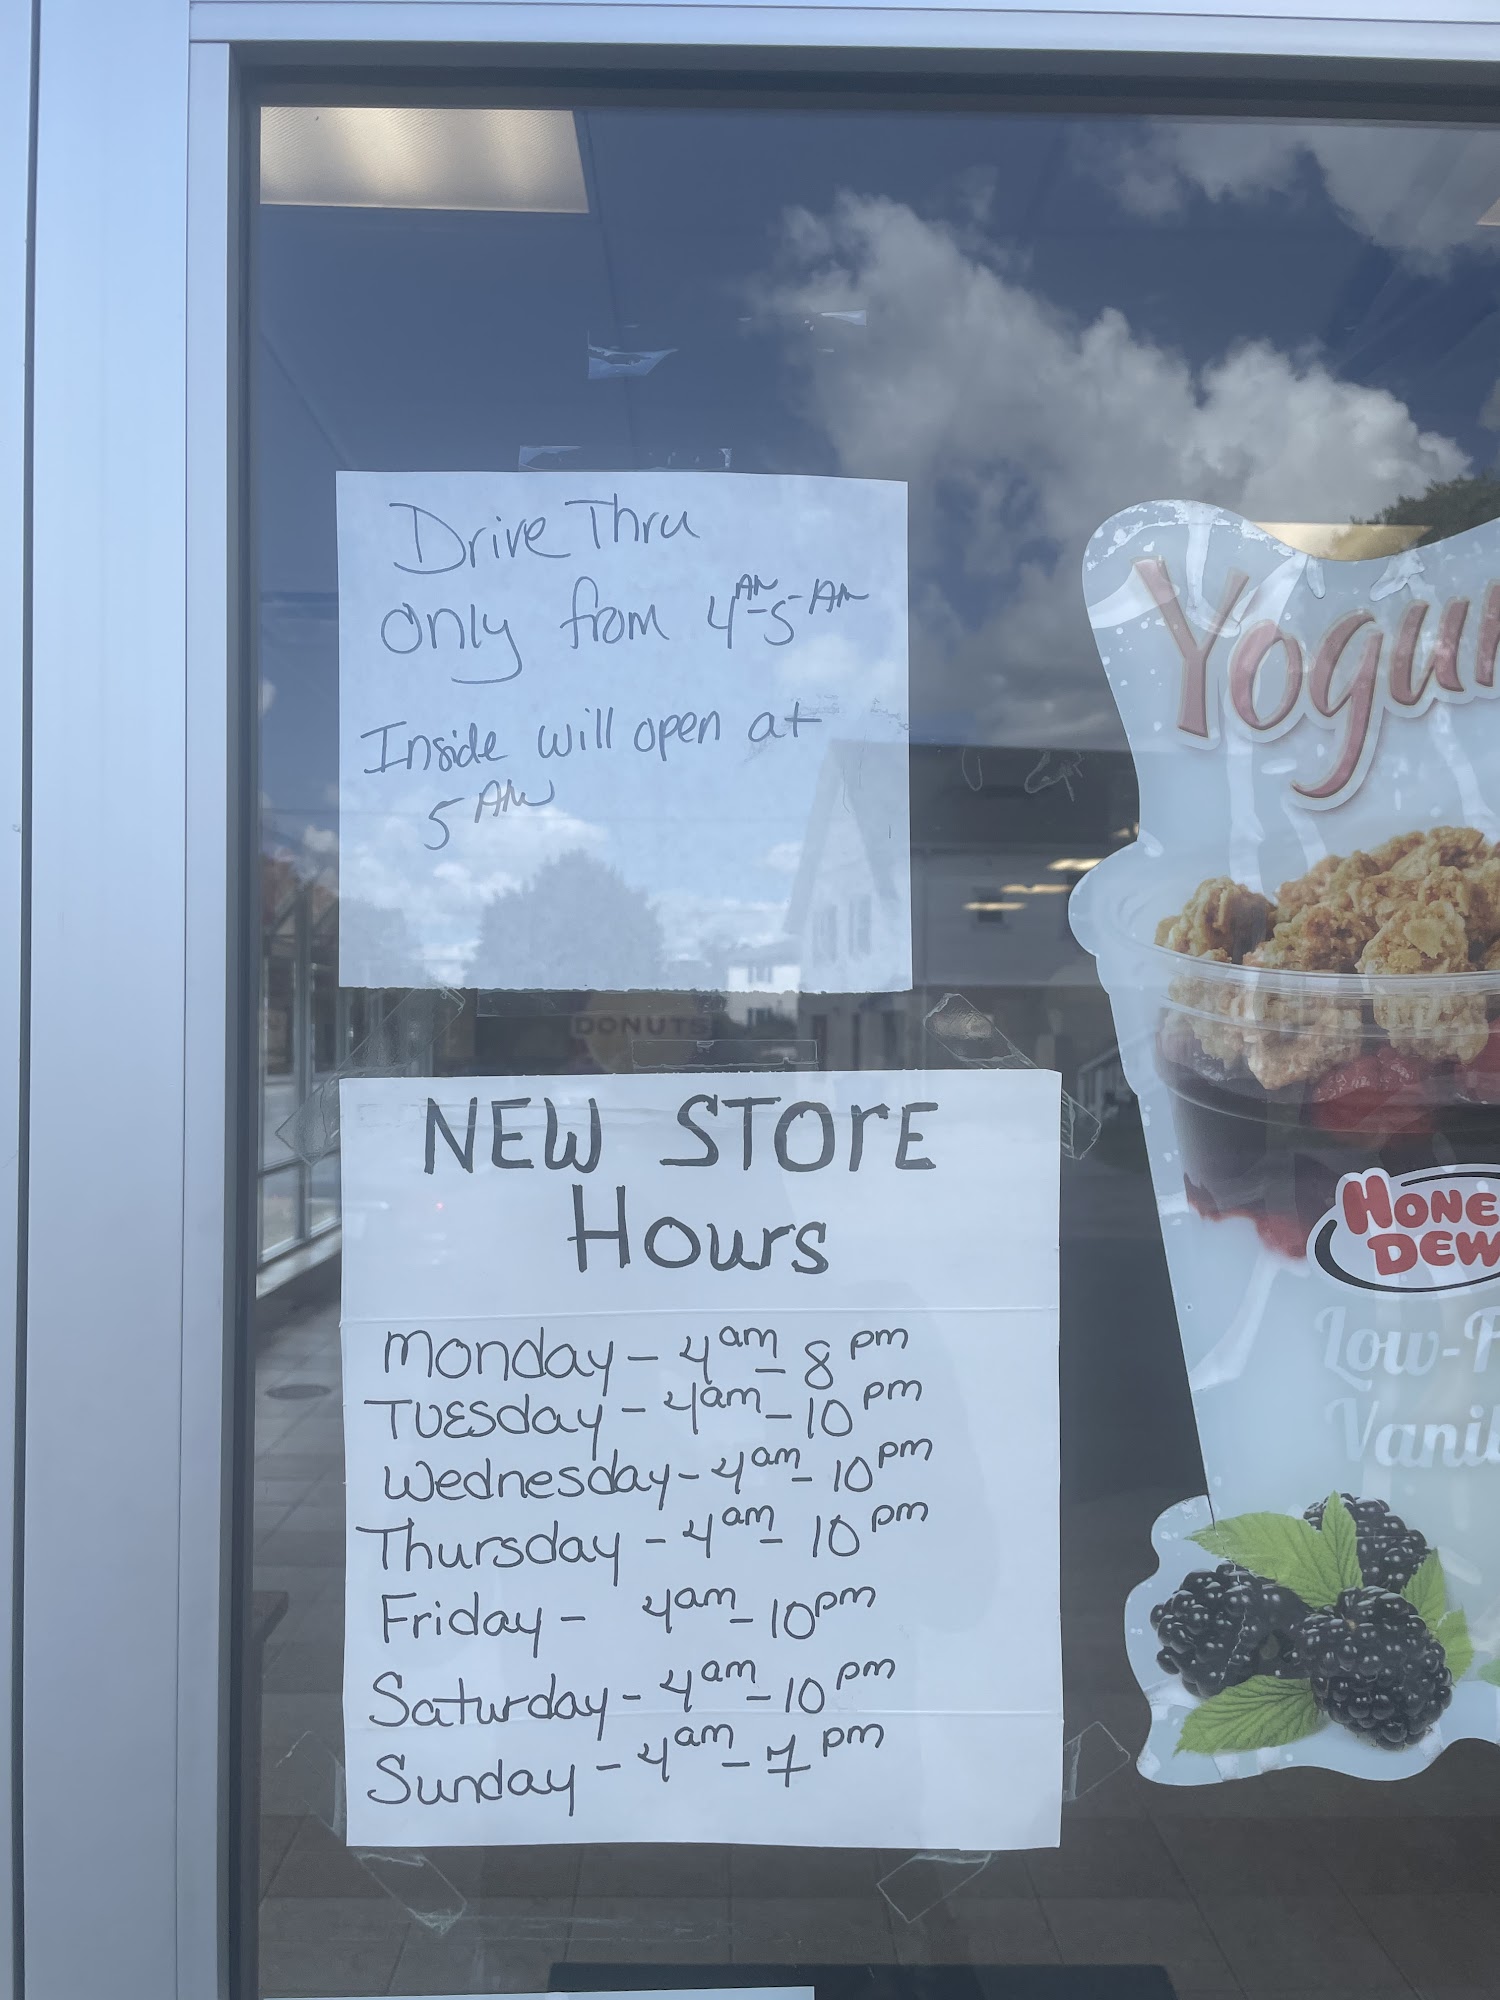 Drive Thru
only from 4AM-5-AM
Inside will open at
5 AM
DONUTS
NEW STOrE
Hours
Monday - 4am - 8pm
TUESday - 4am - 10pm
Wednesday - 4am - 10pm
Thursday - 4am - 10pm
Friday - 4am - 10pm
Saturday - 4am - 10pm
Sunday - 4am - 7pm
HONE
DEW
Low-